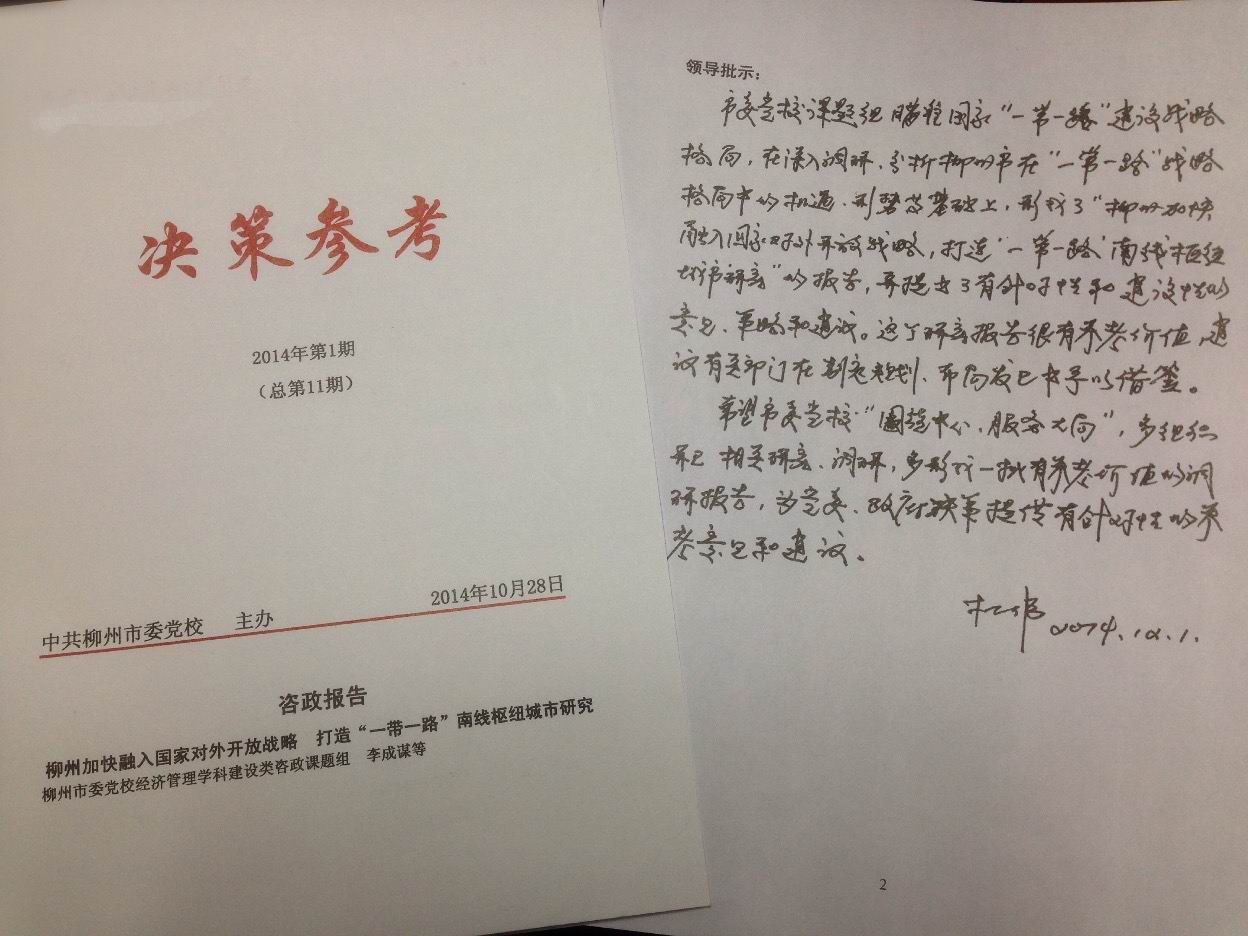 决策参考
2014年第1期
（总第11期）
中共柳州市委党校 主办 2014年10月28日
咨政报告
柳州加快融入国家对外开放战略 打造“一带一路”南线枢纽城市研究
柳州市委党校经济管理学科建设类咨政课题组 李成谋等
领导批示：
市委党校课题组瞄准国家“一带一路”建设战略
格局，在深入调研、分析柳州市在“一带一路”战略
格局中的机遇、形势等基础上，形成了“柳州加快
融入国家对外开放战略，打造“一带一路”南线枢纽
城市研究”的报告，并提出了有针对性和建设性的
意见、策略和建议。这个研究报告很有参考价值，建
议有关部门在制定规划、布局发展中予以借鉴。
希望市委党校“围绕中心、服务大局”，多组织
开展相关研究、调研，多形成一批有参考价值的调
研报告，为党委、政府决策提供有针对性的参
考意见和建议。
2014.12.1.
2